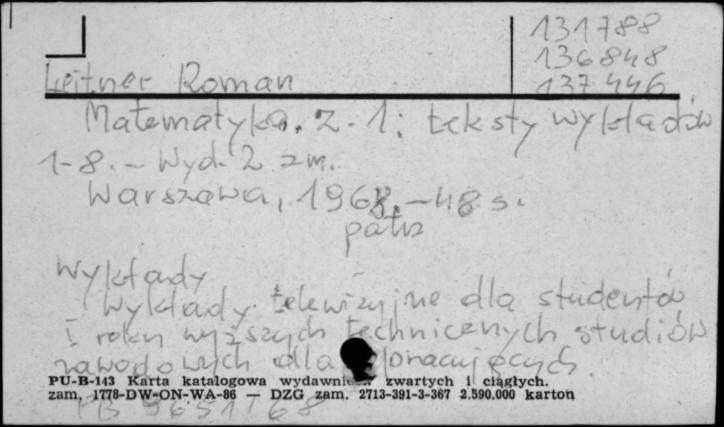 131788
136848
137446
Leitner Roman
Matematyka. Z. 1: teksty wykładów
1-8. - Wyd. 2 zm.
Warszawa, 1968. - 48 s.
patrz
Wykłady
Wykłady telewizyjne dla studentów
I roku wyższych technicznych studiów
zawodowych dla pracujących.
PU-B-143 Karta katalogowa wydawnictw zwartych i ciągłych.
zam. 1778-DW-ON-WA-86 — DZG zam. 2713-391-3-367 2.590.000 karton
PB 9651/68